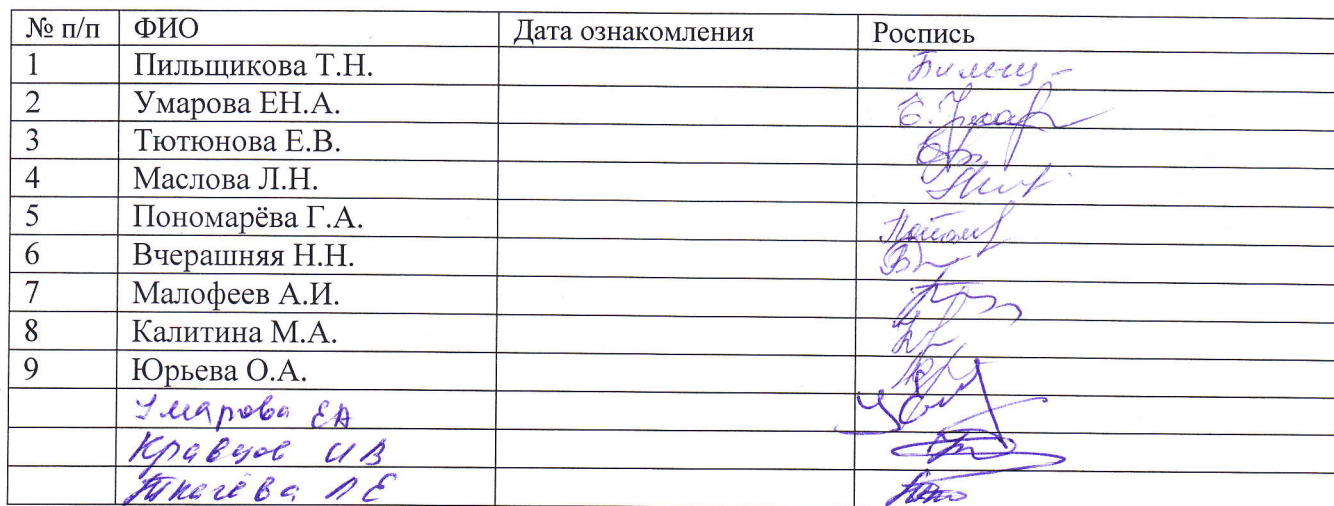 № п/п ФИО Дата ознакомления Роспись
1 Пильщикова Т.Н.
2 Умарова ЕН.А.
3 Тютюнова Е.В.
4 Маслова Л.Н.
5 Пономарёва Г.А.
6 Вчерашняя Н.Н.
7 Малофеев А.И.
8 Калитина М.А.
9 Юрьева О.А.
Умарова ЕА
Кравцов ИВ
Ткачёва ЛЕ